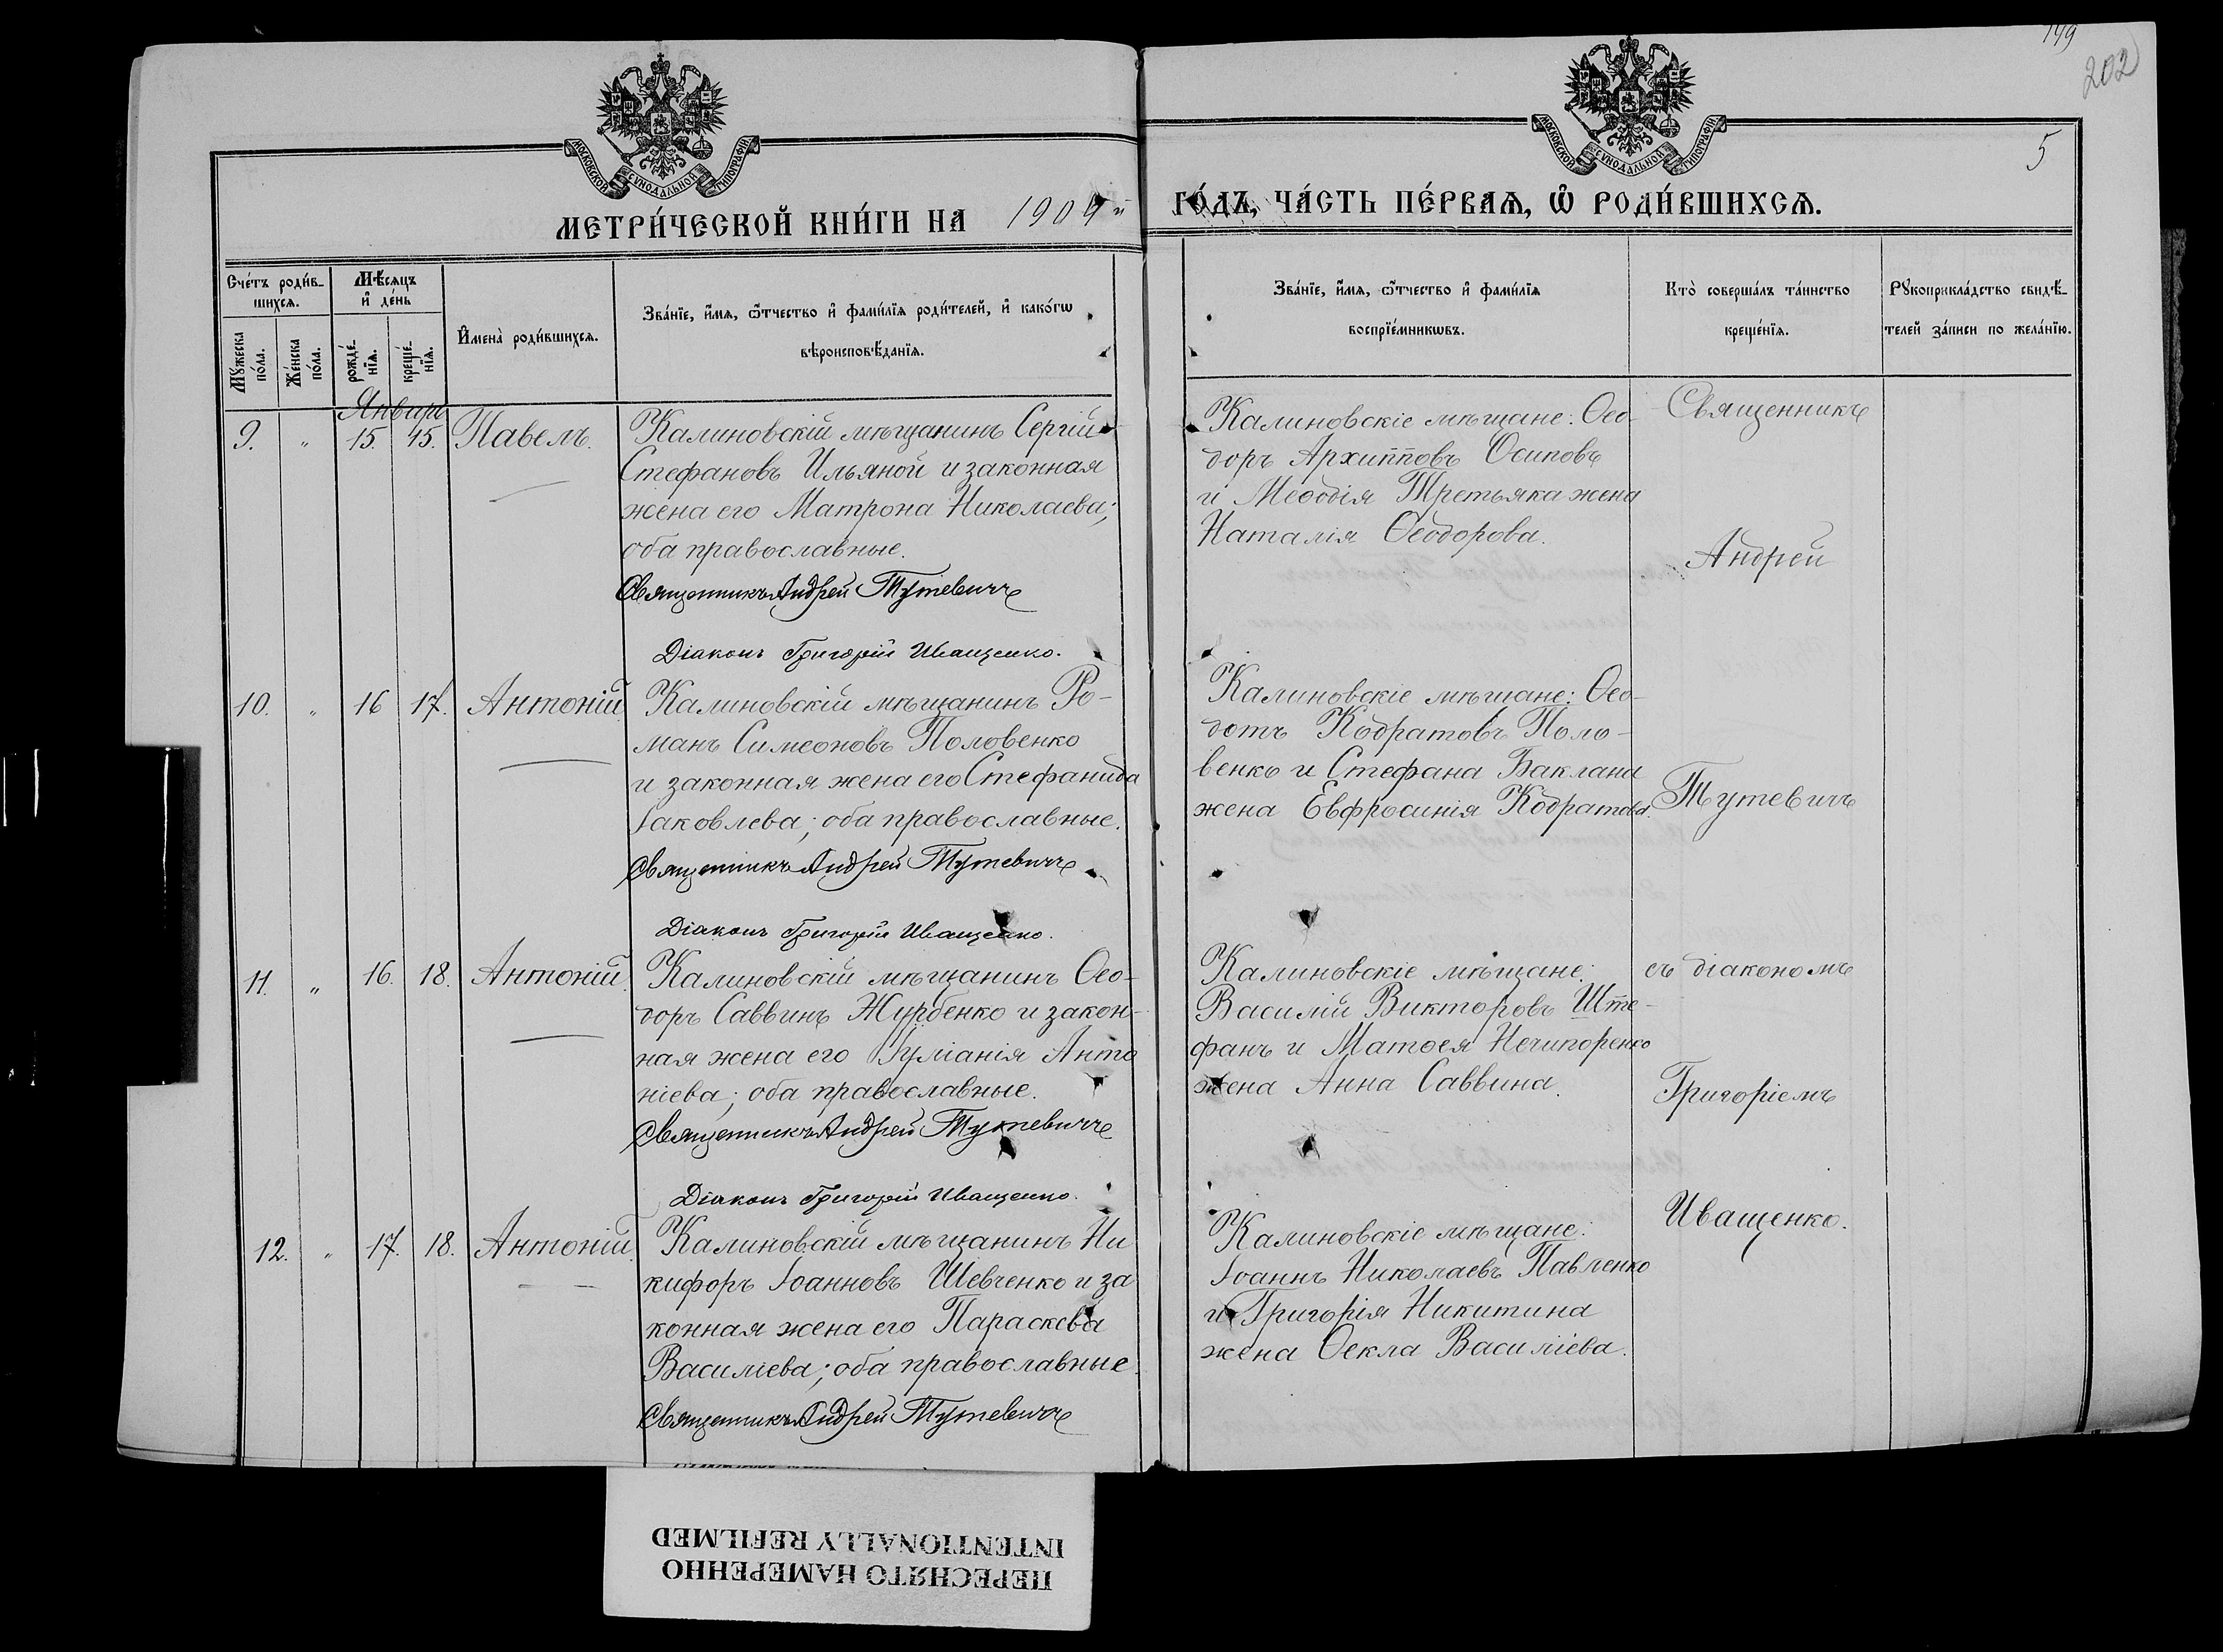 149
202
5
МОСКОВСКОЙ СѴНОДАЛЬНОЙ ТИПОГРАФІИ
МОСКОВСКОЙ СѴНОДАЛЬНОЙ ТИПОГРАФІИ
МЕТРИ́ЧЕСКОЙ КНИ́ГИ НА 1909й
ГО́ДЪ, ЧА́СТЬ ПЕ́РВАѦ, Ѡ РОДИ́ВШИХСѦ.
Сче́тъ роди́в-
шихсѧ.
Мꙋ́жеска по́ла.
Же́нска по́ла.
Мѣ́сѧцъ
и҆ де́нь
рожде́-
нїѧ.
креще́-
нїѧ.
И҆мена̀ роди́вшихсѧ.
Зва́нїе, и҆́мѧ, ѻ҆́тчество и҆ фами́лїѧ роди́телей, и҆ како́гѡ
вѣроисповѣ́данїѧ.
Зва́нїе, и҆́мѧ, ѻ҆́тчество и҆ фами́лїѧ
воспрїе́мникѡвъ.
Кто̀ соверша́лъ та́инство
креще́нїѧ.
Рꙋкоприкла́дство свидѣ́-
телей за́писи по жела́нїю.
Январь
9. „ 15. 15. Павелъ.
Калиновскій мѣщанинъ Сергій
Стефановъ Ильяной и законная
жена его Матрона Николаева;
оба православные.
Священникъ Андрей Тутевичъ
Діаконъ Григорій Иващенко.
Калиновскіе мѣщане: Ѳео-
доръ Архипповъ Осиповъ
и Меѳодія Третьяка жена
Наталія Ѳеодорова.
Священникъ
Андрей
10. „ 16 17. Антоній
Калиновскій мѣщанинъ Ро-
манъ Симеоновъ Половенко
и законная жена его Стефанида
Іаковлева; оба православные.
Священникъ Андрей Тутевичъ
Діаконъ Григорій Иващенко.
Калиновскіе мѣщане: Ѳео-
дотъ Кодратовъ Поло-
венко и Стефана Баклана
жена Евфросинія Кодратова.
Тутевичъ
11. „ 16. 18. Антоній.
Калиновскій мѣщанинъ Ѳео-
доръ Саввинъ Журбенко и закон-
ная жена его Іуліанія Анто
ніева; оба православные.
Священникъ Андрей Тутевичъ
Діаконъ Григорій Иващенко.
Калиновскіе мѣщане:
Василій Викторовъ Ште-
фанъ и Матѳея Нечипоренко
жена Анна Саввина.
съ діакономъ
Григоріемъ
12. „ 17. 18. Антоній.
Калиновскій мѣщанинъ Ни
кифоръ Іоанновъ Шевченко и за
конная жена его Параскева
Василіева; оба православные.
Священникъ Андрей Тутевичъ
Калиновскіе мѣщане:
Іоаннъ Николаевъ Павленко
и Григорія Никитина
жена Ѳекла Василіева.
Иващенко.
ПЕРЕСНЯТО НАМЕРЕННО
INTENTIONALLY REFILMED